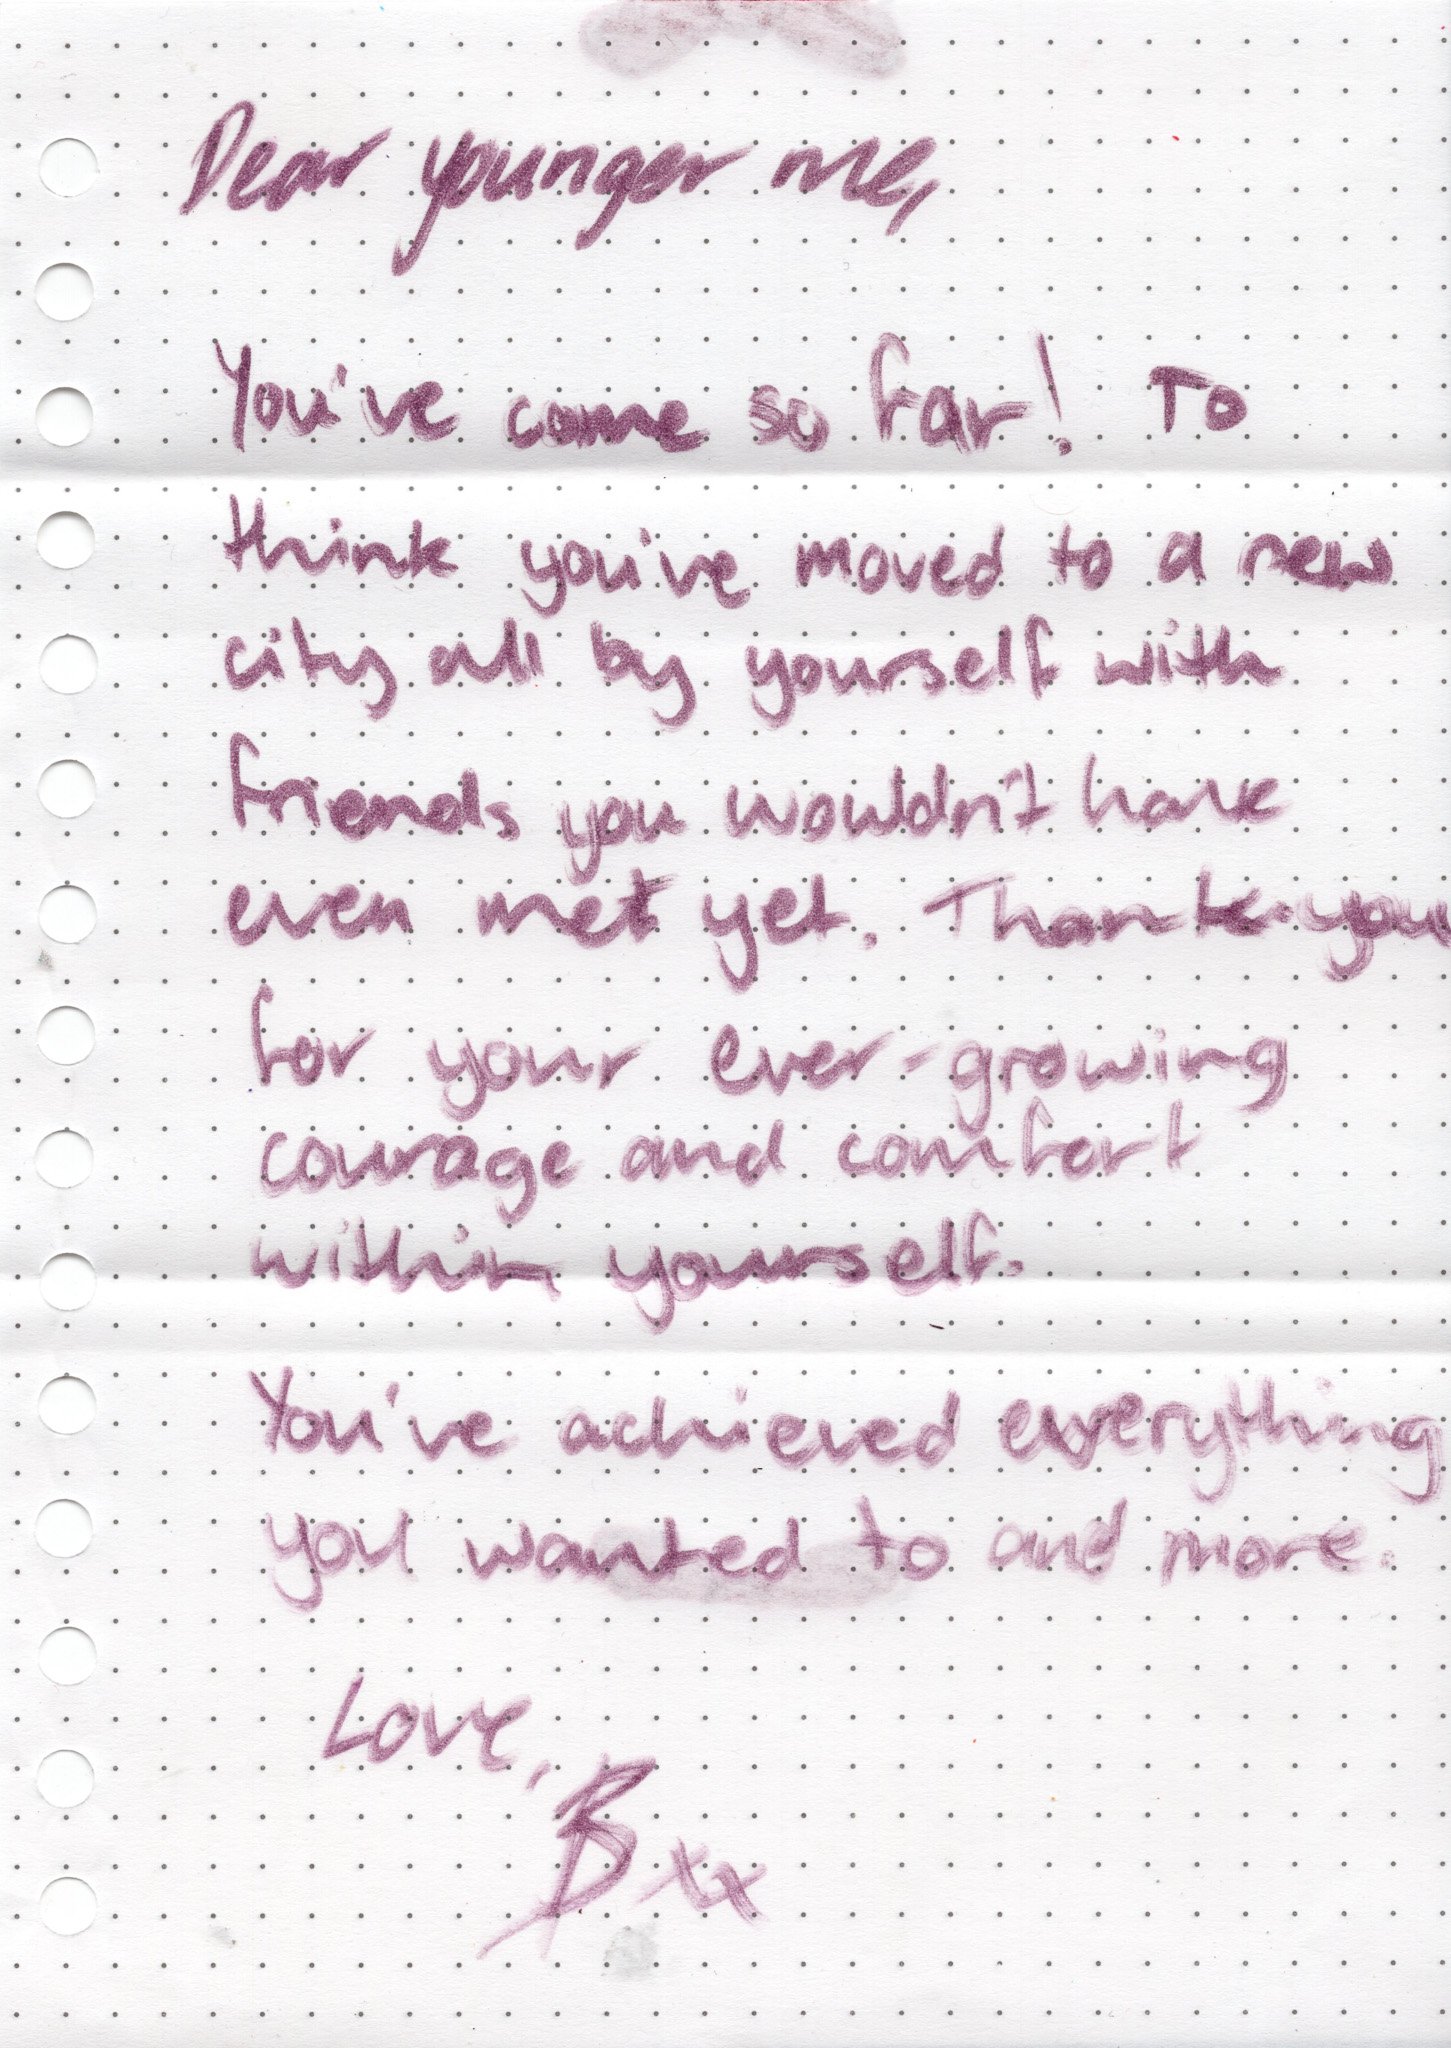 Dear younger me,
You've come so far! To
think you've moved to a new
city all by yourself with
friends you wouldn't have
even met yet. Thank you
for your ever-growing
courage and comfort
within yourself.
You've achieved everything
you wanted to and more.
Love,
B xx